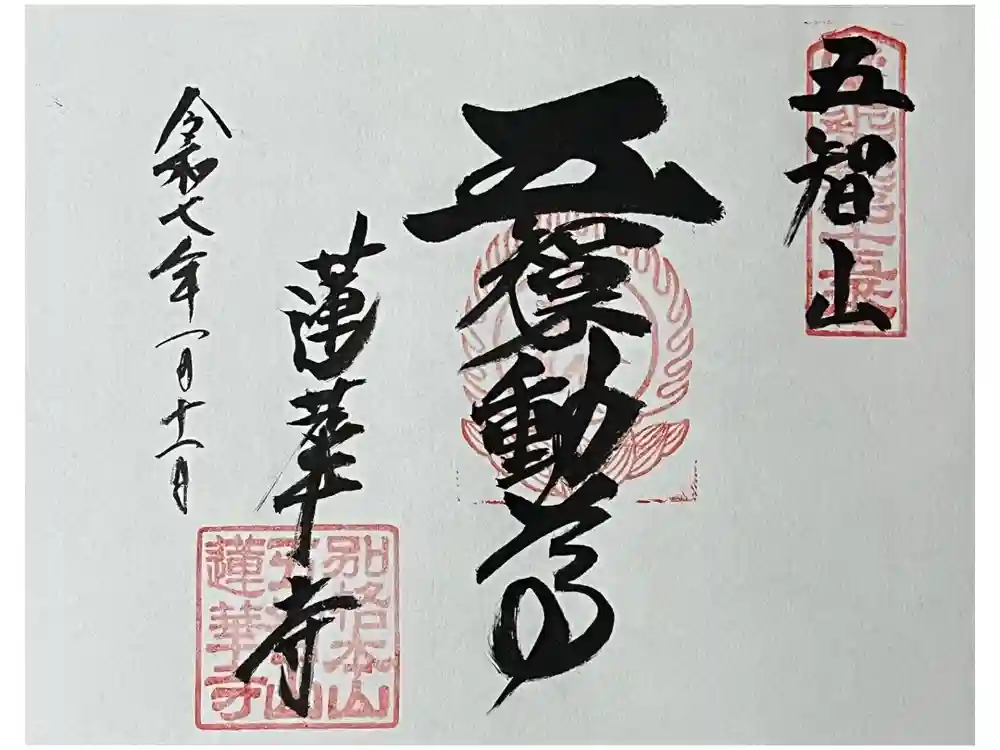 五智山
五動尊
蓮華寺
令和七年一月十一日
別格本山
五智山
蓮華寺